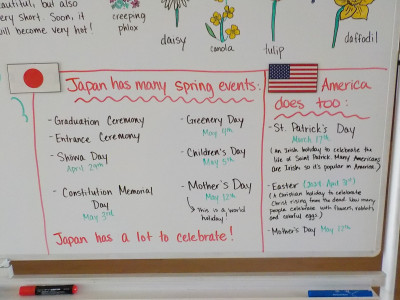 beautiful, but also
very short. Soon, it
will become very hot!
creeping
phlox
daisy
canola
tulip
daffodil
Japan has many spring events:
- Graduation Ceremony
- Entrance Ceremony
- Showa Day
April 29th
- Constitution Memorial
Day
May 3rd
- Greenery Day
May 4th
- Children's Day
May 5th
- Mother's Day
May 12th
↳ This is a world
holiday!
Japan has a lot to celebrate!
America
does too:
- St. Patrick's Day
March 17th
(An Irish holiday to celebrate the
life of Saint Patrick. Many Americans
are Irish so it's popular in America.)
- Easter (2024: April 31st)
(A Christian holiday to celebrate
Christ rising from the dead. Now many
people celebrate with flowers, rabbits
and colorful eggs.)
- Mother's Day May 12th